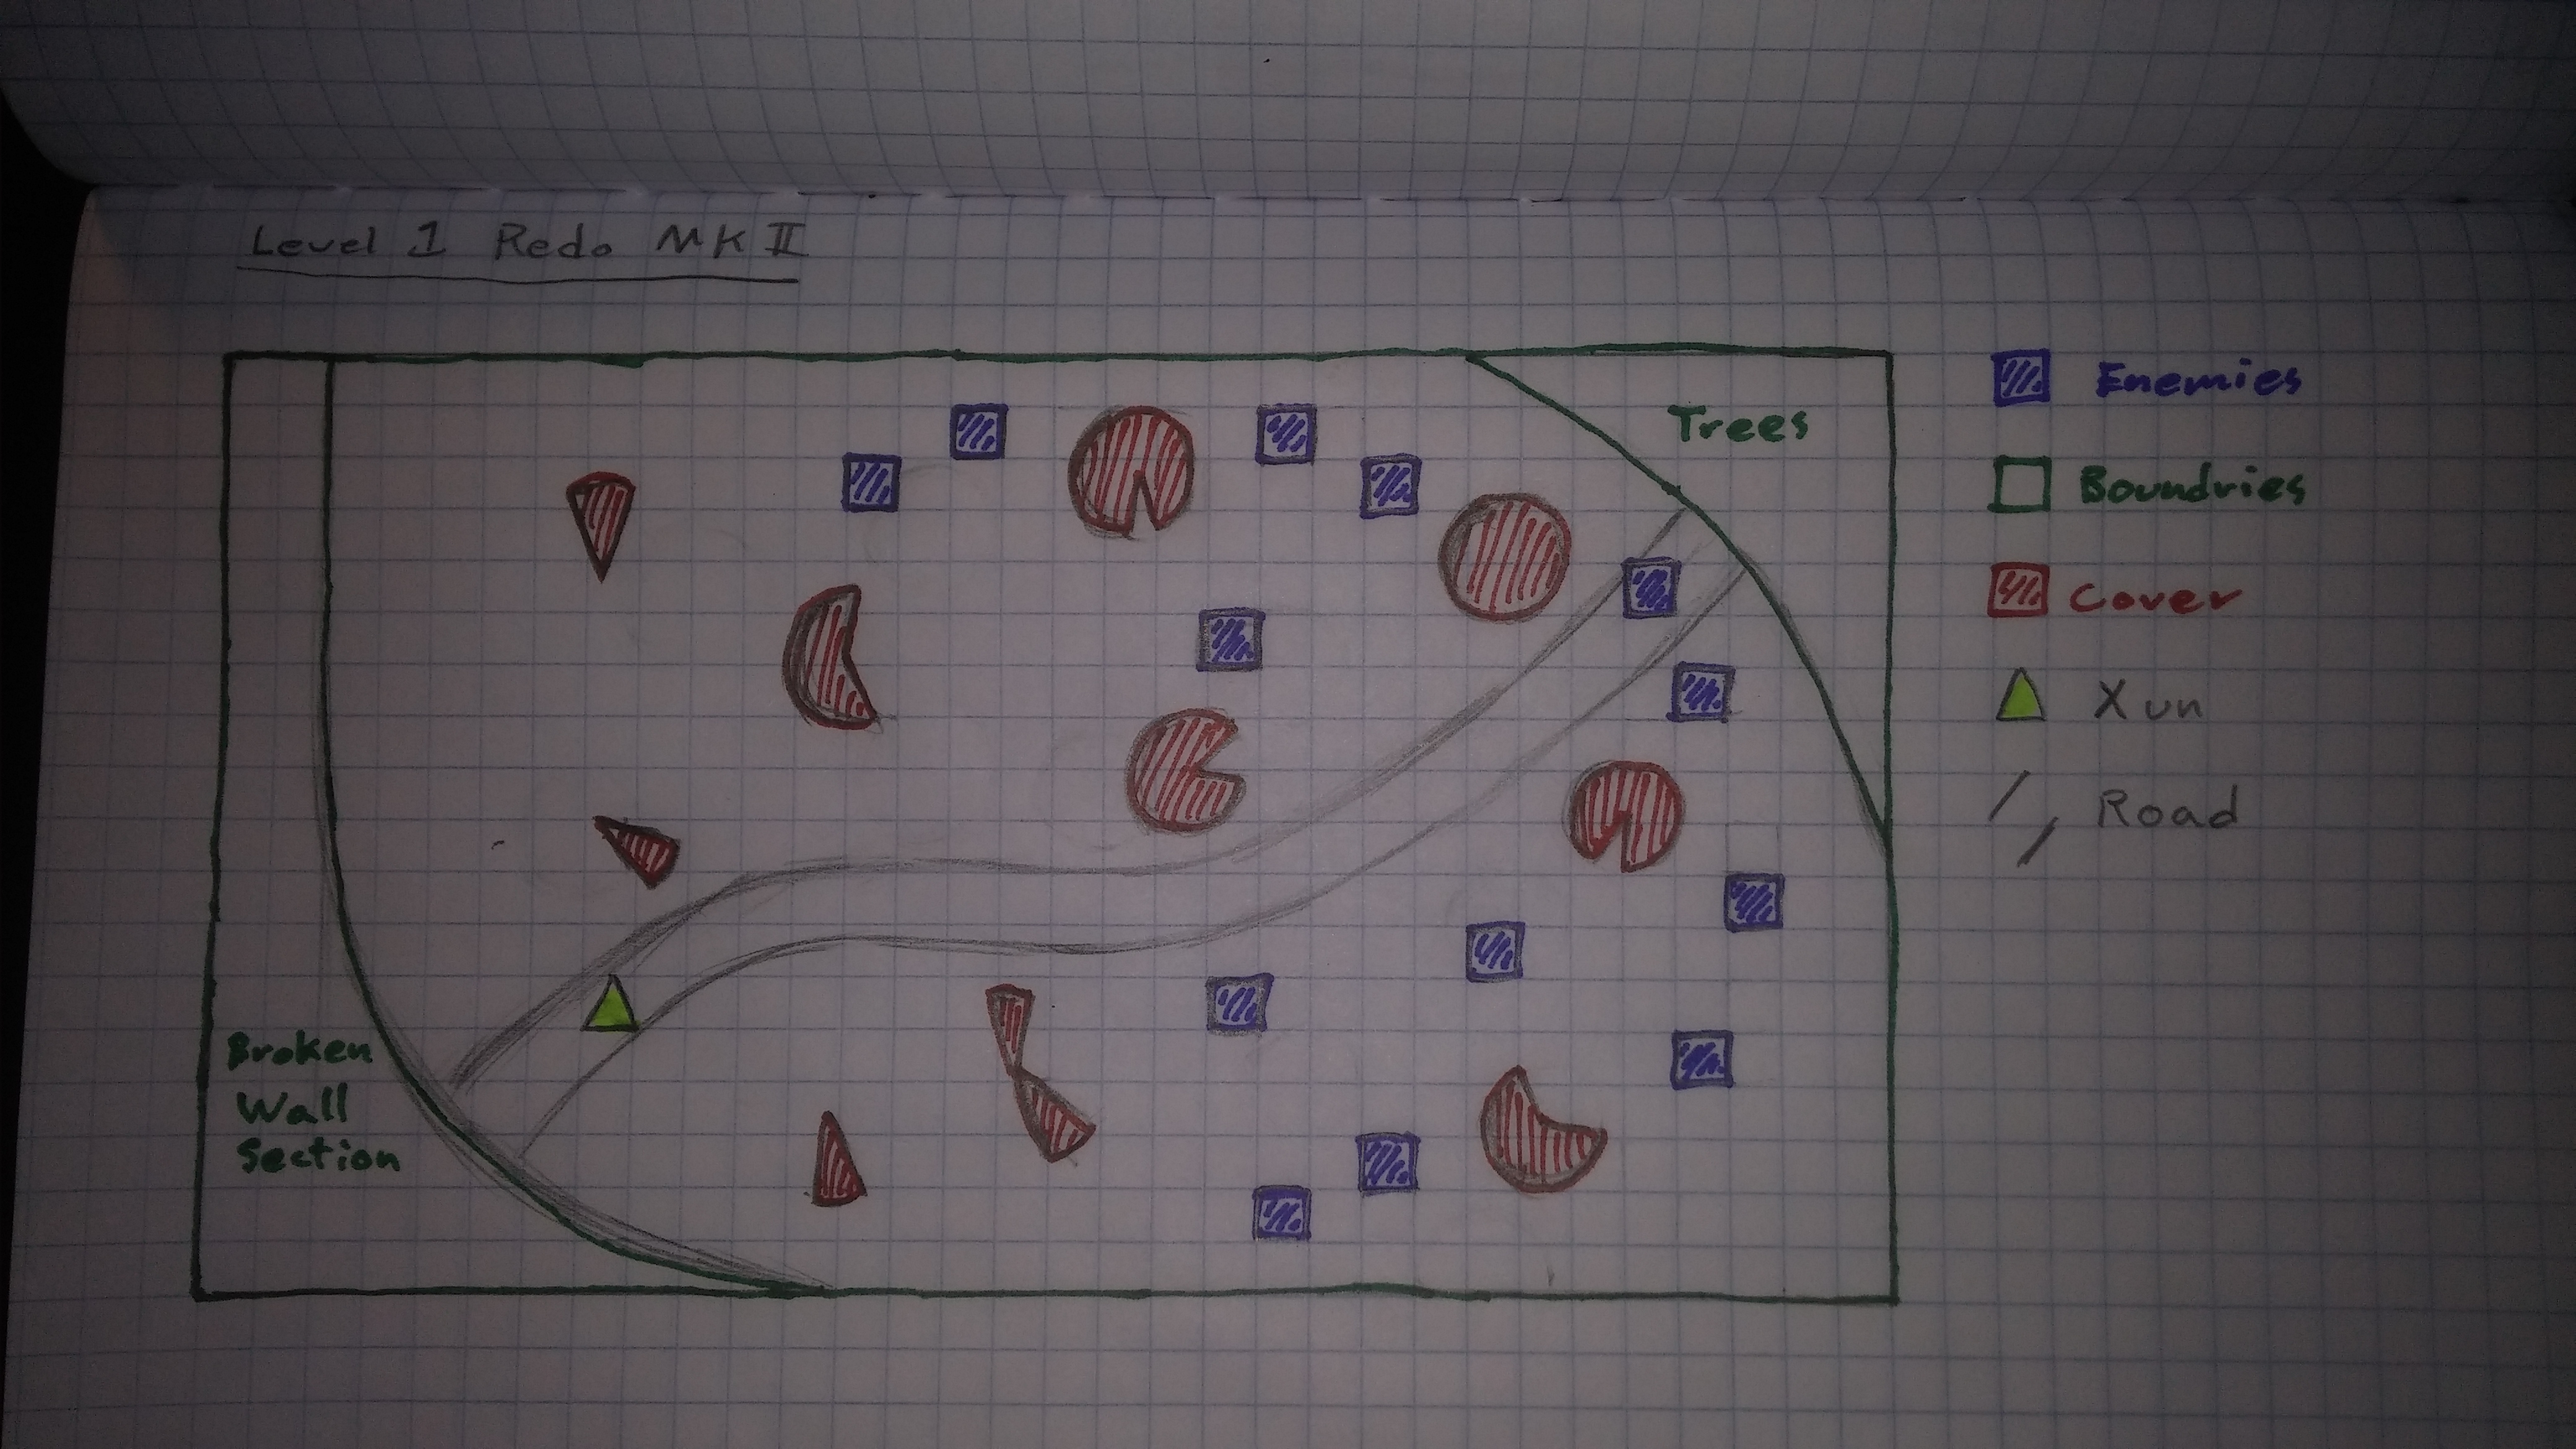 Level 1 Redo MK II
Trees
Broken
Wall
Section
Enemies
Boundries
Cover
Xun
Road